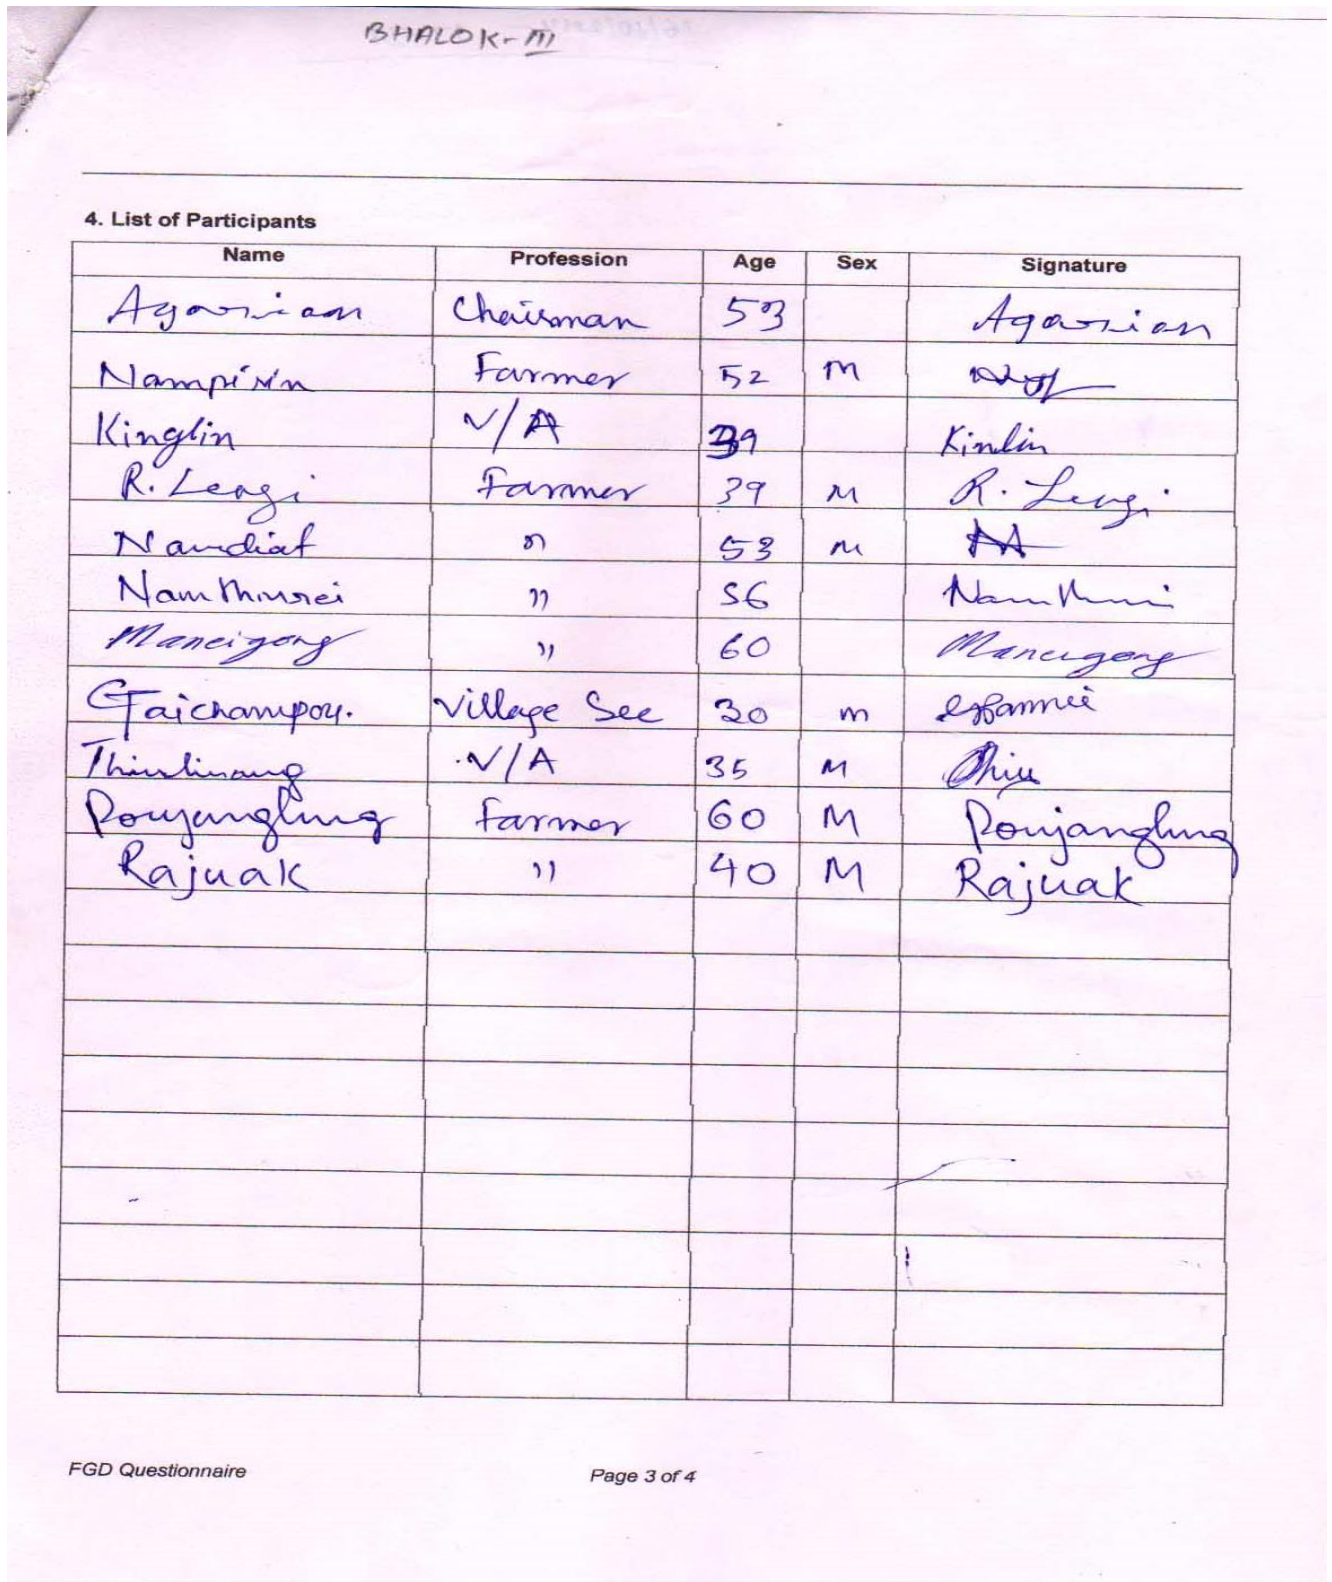 BHALOK-III
4. List of Participants
Name Profession Age Sex Signature
Agarian Chairman 53 Agarian
Nampirin Farmer 52 M
Kinglin N/A 39 Kinlin
R. Leagi Farmer 39 M R. Leugi
Namdiat " 53 M
Namthiurei " 56
Maneigong " 60 Maneigong
Gaichampou. Village Sec 30 m
N/A 35 M
Poujanglung Farmer 60 M Poujanglung
Rajuak " 40 M Rajuak
FGD Questionnaire Page 3 of 4